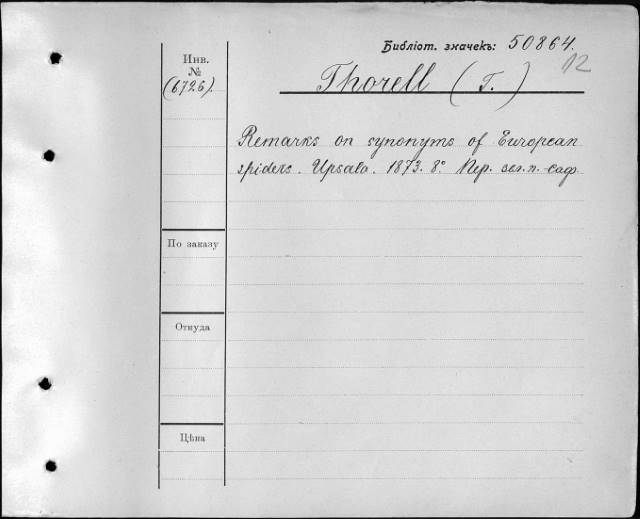 Библіот. значекъ: 50864.
12
Инв.
№
(6726).
Thorell (T.)
Remarks on synonyms of European
spiders. Upsala. 1873. 8° Пер. зел. п.-саф
По заказу
Откуда
Цѣна